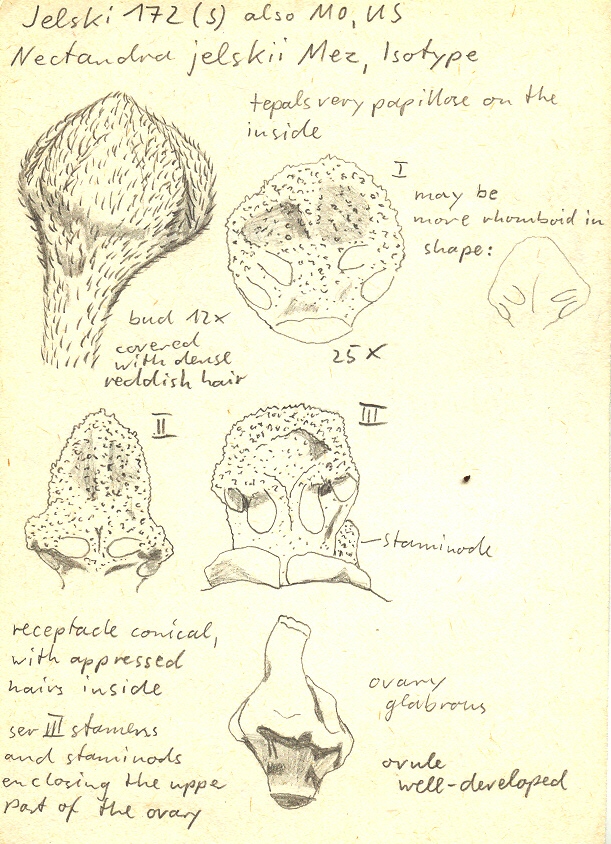 Jelski 172 (S) also MO, US
Nectandra jelskii Mez, Isotype
tepals very papillose on the
inside
I
may be
more rhomboid in
shape:
bud 12x
covered
with dense
reddish hair
25 x
II
III
staminode
receptacle conical,
with appressed
hairs inside
ser III stamens
and staminods
enclosing the uppe
part of the ovary
ovary
glabrous
ovule
well-developed